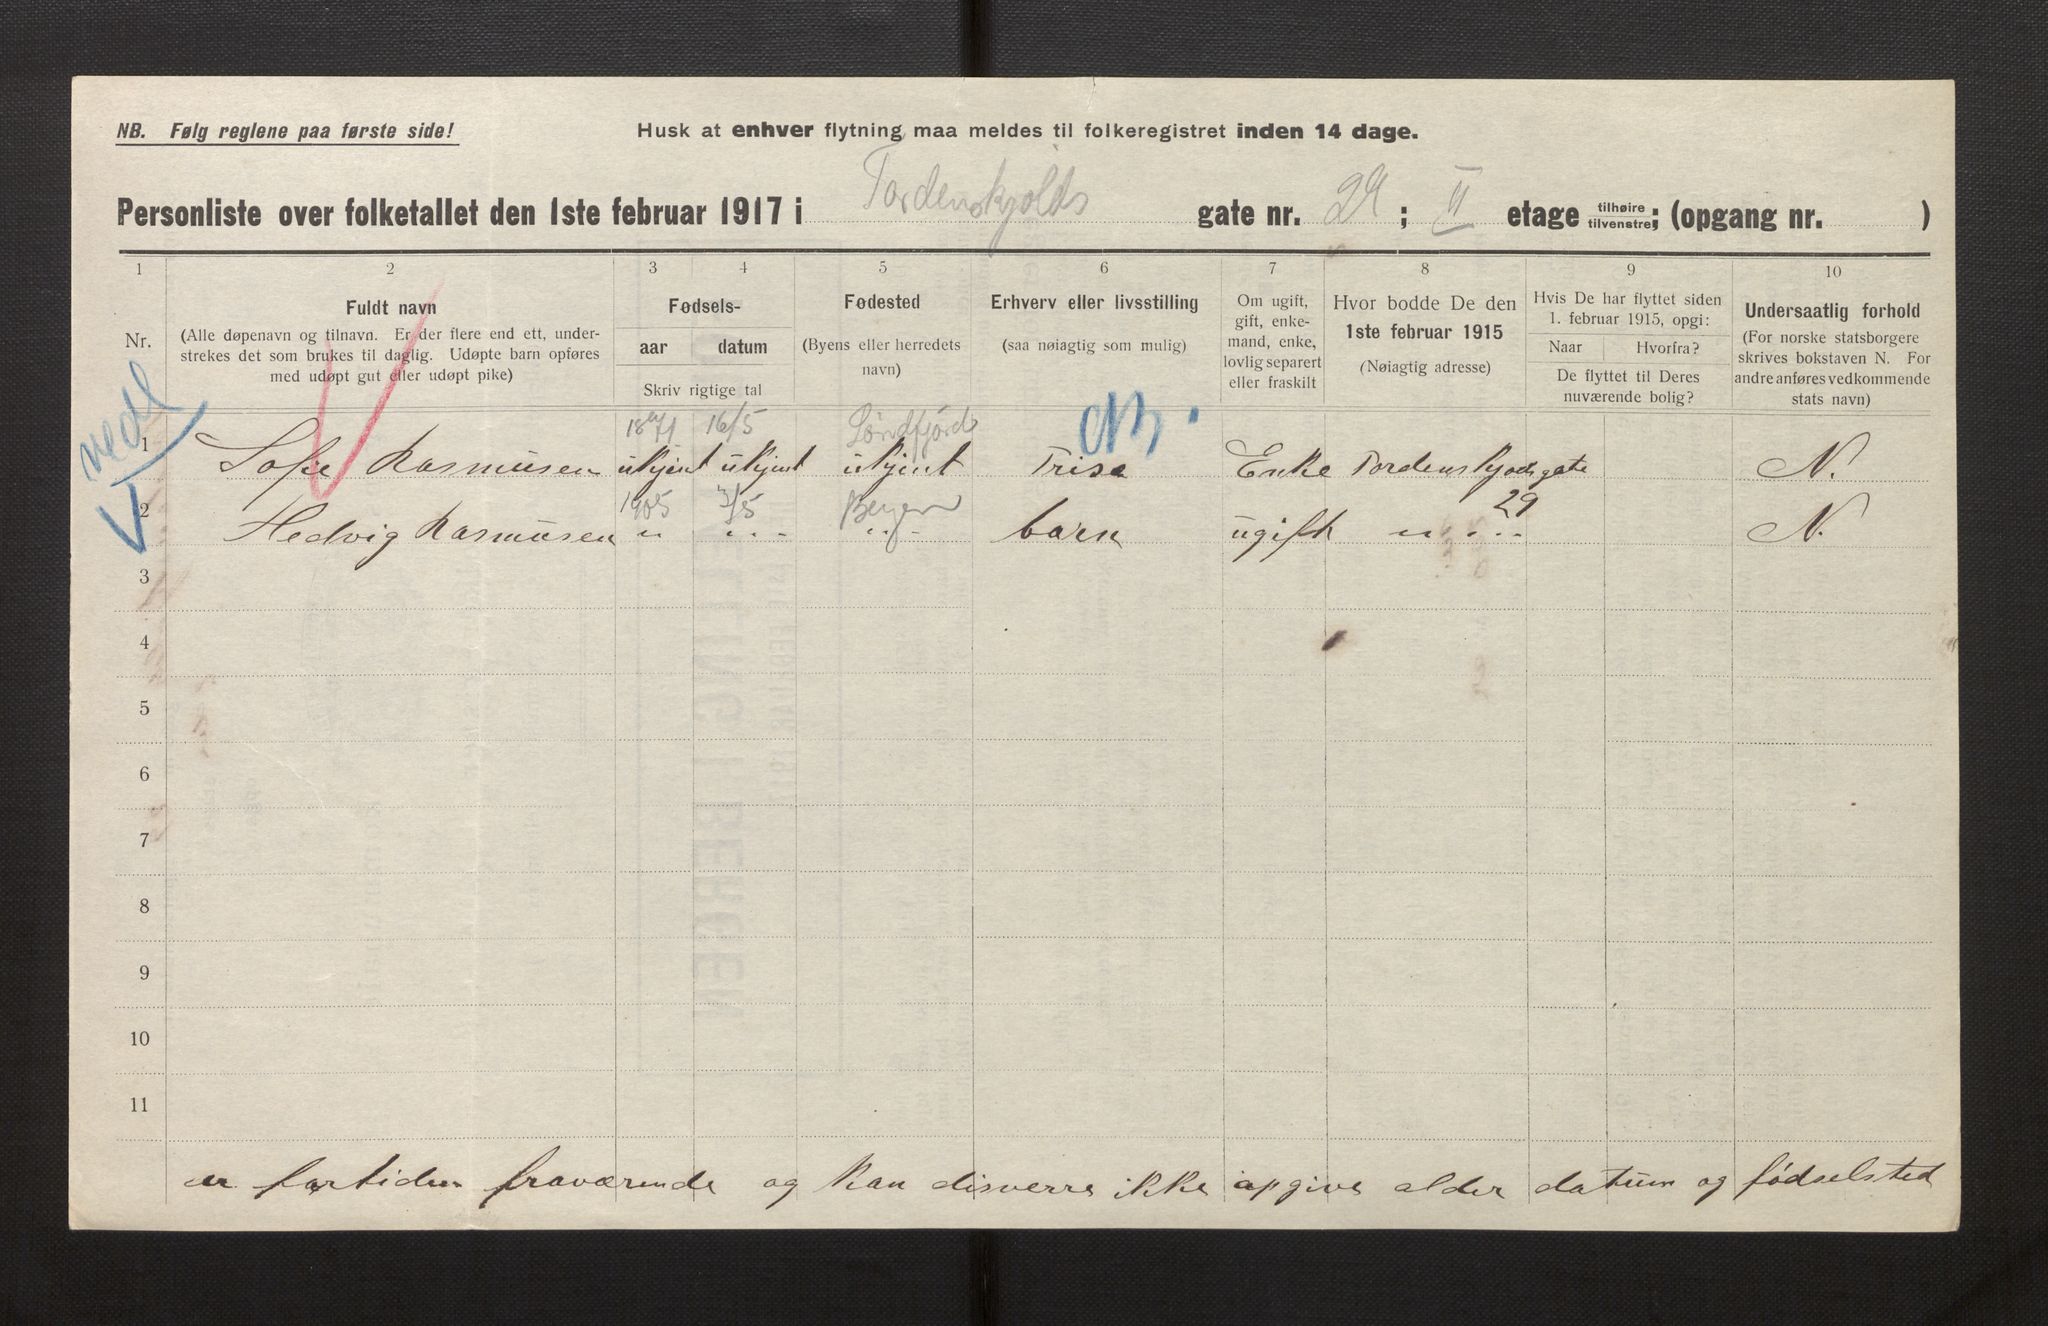 NB. Følg reglene paa første side!
Husk at enhver flytning maa meldes til folkeregistret inden 14 dage.
Personliste over folketallet den 1ste februar 1917 i Tordenskjolds gate nr. 29 ; II etage tilhøire tilvenstre ; (opgang nr. )
1 2 3 4 5 6 7 8 9 10
Nr.
Fuldt navn
(Alle døpenavn og tilnavn. Er der flere end ett, under-
strekes det som brukes til daglig. Udøpte barn opføres
med udøpt gut eller udøpt pike)
Fødsels-
aar datum
Skriv rigtige tal
Fødested
(Byens eller herredets
navn)
Erhverv eller livsstilling
(saa nøiagtig som mulig)
Om ugift,
gift, enke-
mand, enke,
lovlig separert
eller fraskilt
Hvor bodde De den
1ste februar 1915
(Nøiagtig adresse)
Hvis De har flyttet siden
1. februar 1915, opgi:
Naar Hvorfra?
De flyttet til Deres
nuværende bolig?
Undersaatlig forhold
(For norske statsborgere
skrives bokstaven N. For
andre anføres vedkommende
stats navn)
vedl
1 1871 16/5 Søndfjord NB.
Sofie Rasmusen ukjent ukjent ukjent Enke Tordenskjodsgate N.
2 1905 3/5 Bergen 29
Hedvig Rasmusen " " " barn ugift " " N.
3
4
5
6
7
8
9
10
11
er fortiden fraværende og kan disverre ikke opgive alder datum og fødselsted